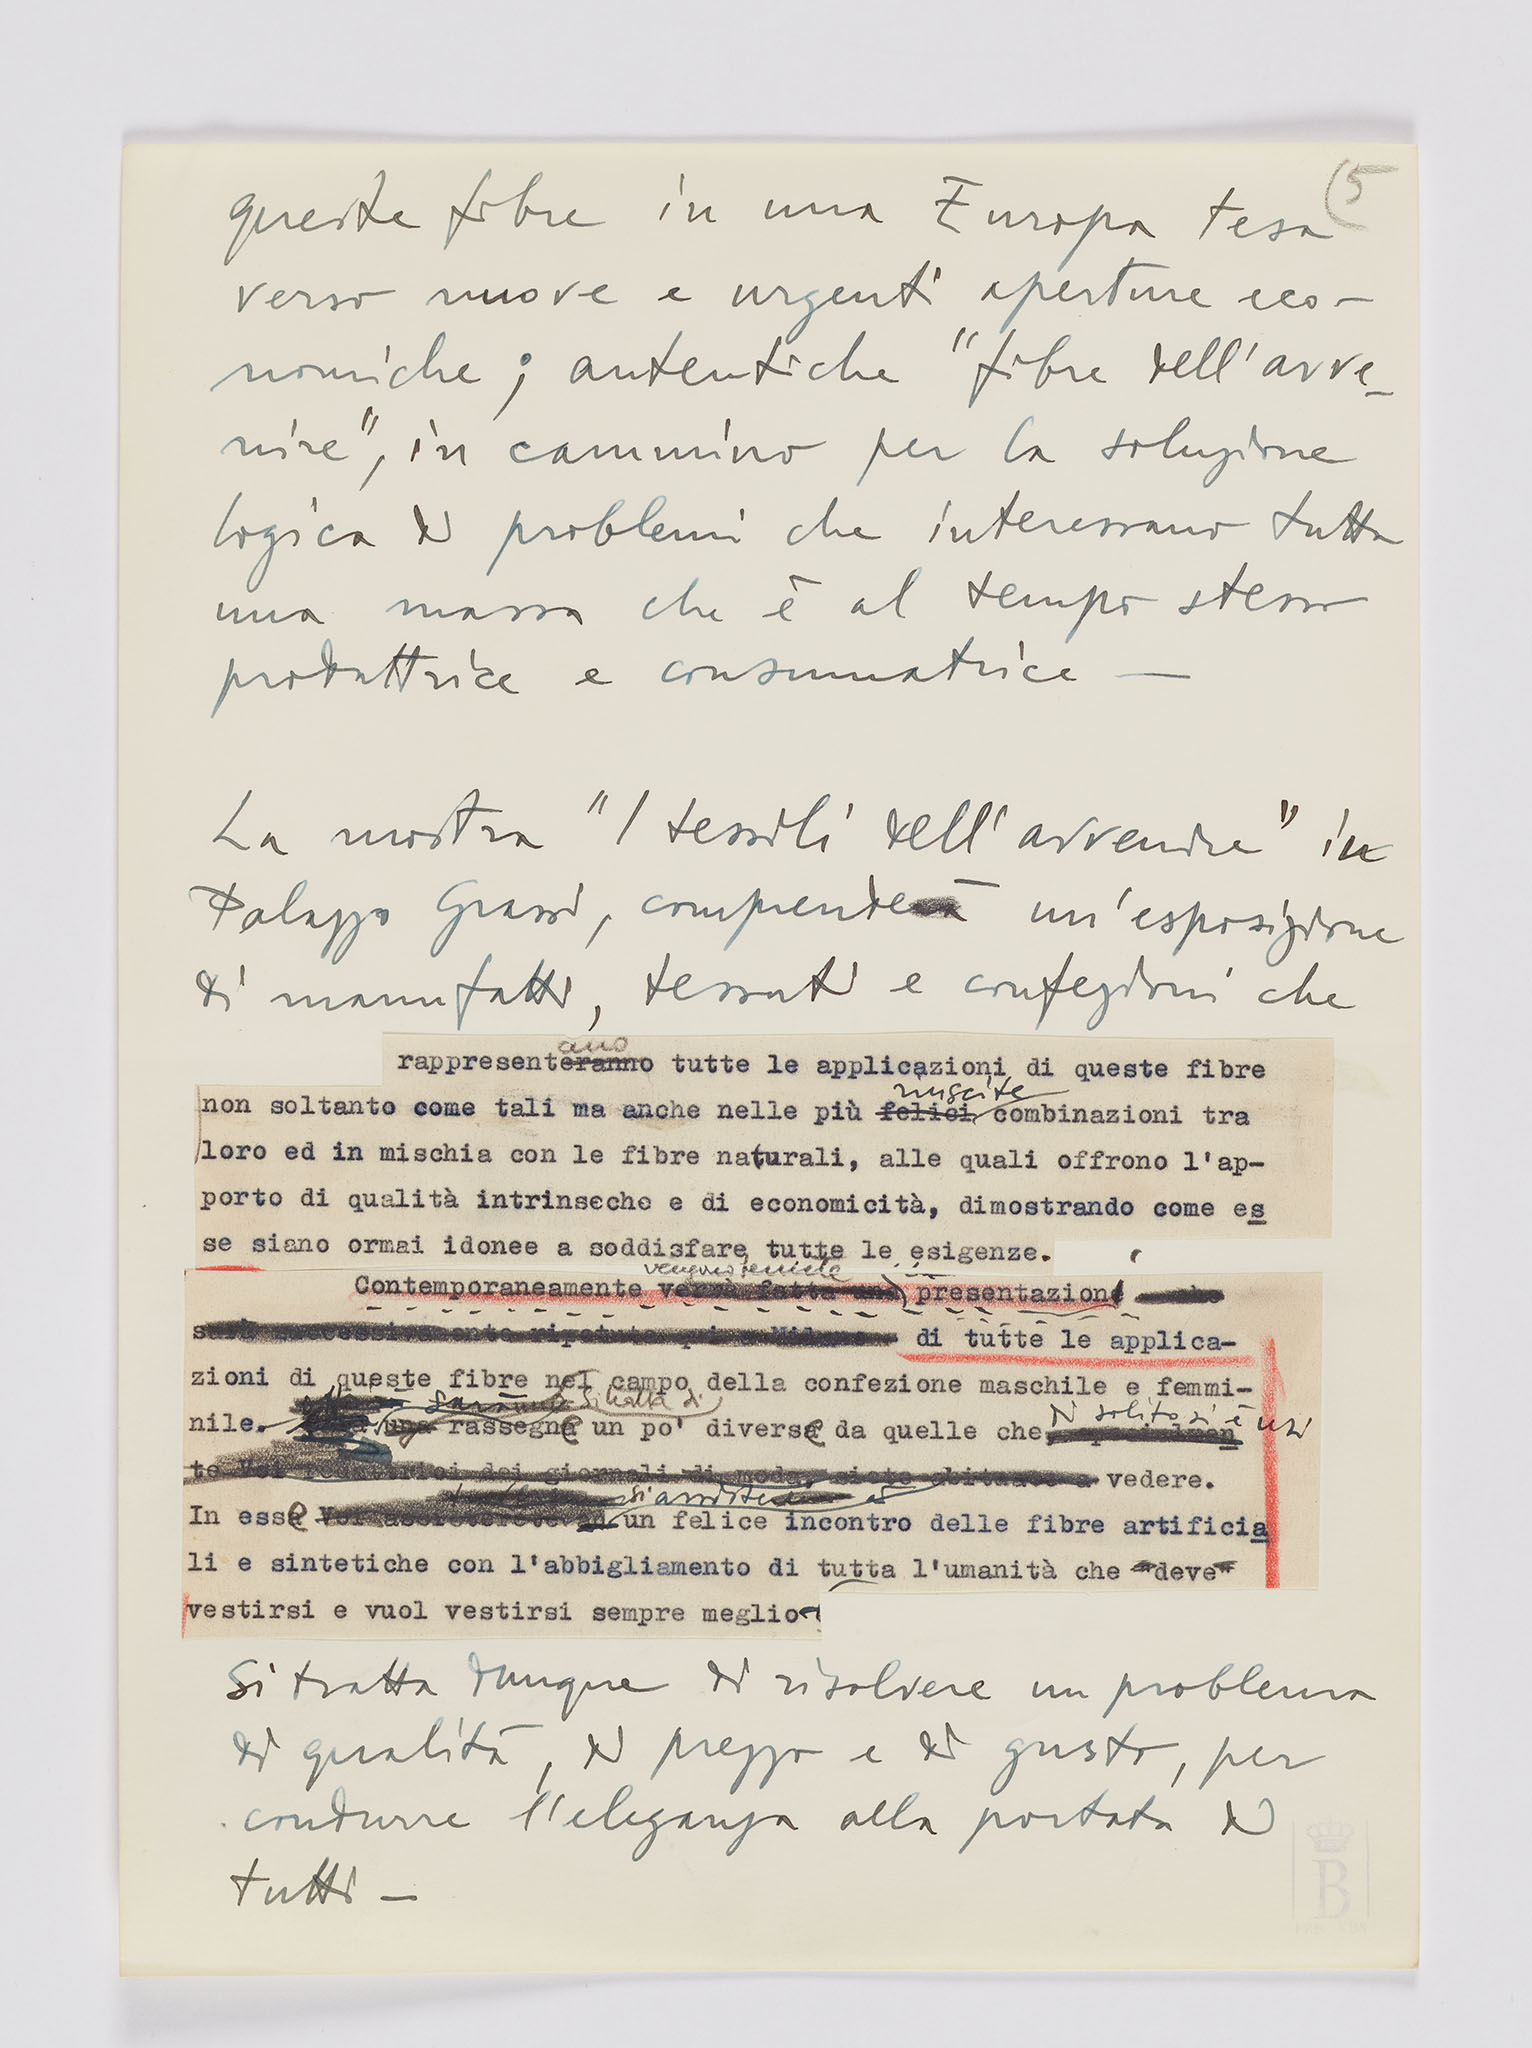 (5
queste fibre in una Europa tesa
verso nuove e urgenti aperture eco-
nomiche; autentiche "fibre dell'avve-
nire", in cammino per la soluzione
logica di problemi che interessano tutta
una massa che è al tempo stesso
produttrice e consumatrice —
La mostra "I tessili dell'avvenire" in
Palazzo Grassi, comprende un'esposizione
di manufatti, tessuti e confezioni che
ano
rappresenteranno tutte le applicazioni di queste fibre
riuscite
non soltanto come tali ma anche nelle più felici combinazioni tra
loro ed in mischia con le fibre naturali, alle quali offrono l'ap-
porto di qualità intrinseche e di economicità, dimostrando come es
se siano ormai idonee a soddisfare tutte le esigenze.
vengono
Contemporaneamente verrà fatta una presentazioni che
sarà successivamente ripetuta qui a Milano di tutte le applica-
zioni di queste fibre nel campo della confezione maschile e femmi-
sarà si tratta di
nile. una rassegne un po' diverse da quelle che
di solito si è usi
te Voi redattrici dei giornali di moda, siete abituate a vedere.
si assiste ad
In esse Voi assisterete ad un felice incontro delle fibre artificia
li e sintetiche con l'abbigliamento di tutta l'umanità che "deve"
vestirsi e vuol vestirsi sempre meglio.
Si tratta dunque di risolvere un problema
di qualità, di prezzo e di gusto, per
condurre l'eleganza alla portata di
tutti —
B